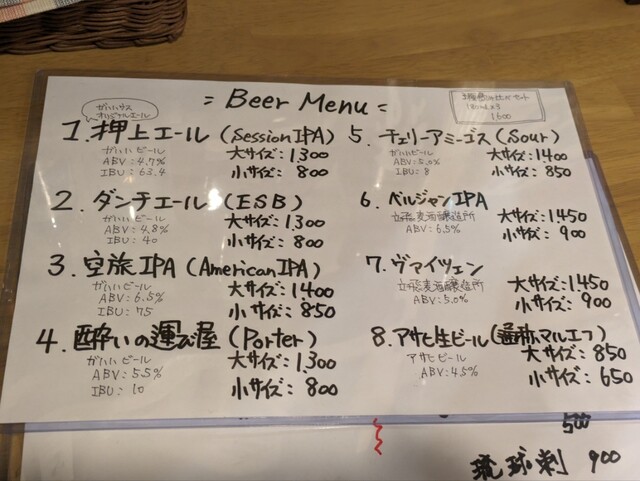 = Beer Menu =
ガハハウス
オリジナルエール
セット
1600
1. 押上エール (Session IPA)
ガハハビール
ABV: 4.7%
IBU: 63.4
大サイズ: 1,300
小サイズ: 800
2. ダンチエール (ESB)
ガハハビール
ABV: 4.8%
IBU: 40
大サイズ: 1,300
小サイズ: 800
3. 空旅IPA (American IPA)
ガハハビール
ABV: 6.5%
IBU: 75
大サイズ: 1,400
小サイズ: 850
4. 酔いの運び屋 (Porter)
ガハハビール
ABV: 5.5%
IBU: 10
大サイズ: 1,300
小サイズ: 800
5. チェリーアミーゴス (Sour)
ガハハビール
ABV: 5.0%
IBU: 8
大サイズ: 1400
小サイズ: 850
6. ベルジャンIPA
麦酒醸造所
ABV: 6.5%
大サイズ: 1,450
小サイズ: 900
7. ヴァイツェン
麦酒醸造所
ABV: 5.0%
大サイズ: 1,450
小サイズ: 900
8. アサヒ生ビール (通称マルエフ)
アサヒビール
ABV: 4.5%
大サイズ: 850
小サイズ: 650
500
琉球刺 900